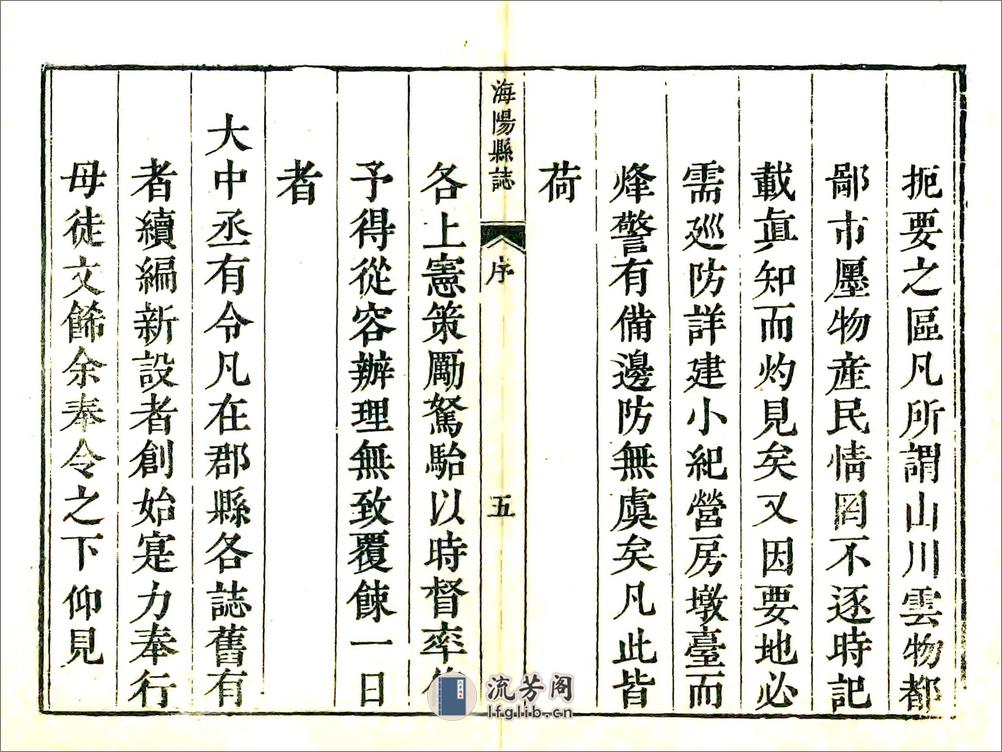 扼要之區凡所謂山川雲物都
鄙市廛物產民情罔不逐時記
載眞知而灼見矣又因要地必
需廵防詳建小紀營房墩臺而
烽警有備邊防無虞矣凡此皆
荷
海陽縣誌
序
五
各上憲策勵駑駘以時督率
予得從容辦理無致覆餗一日
者
大中丞有令凡在郡縣各誌舊有
者續編新設者創始寔力奉行
母徒文餙余奉令之下仰見
流芳阁
lfglib.cn